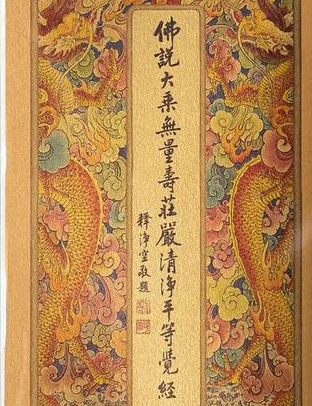 佛說大乘無量壽莊嚴清淨平等覺經
釋淨空敬題